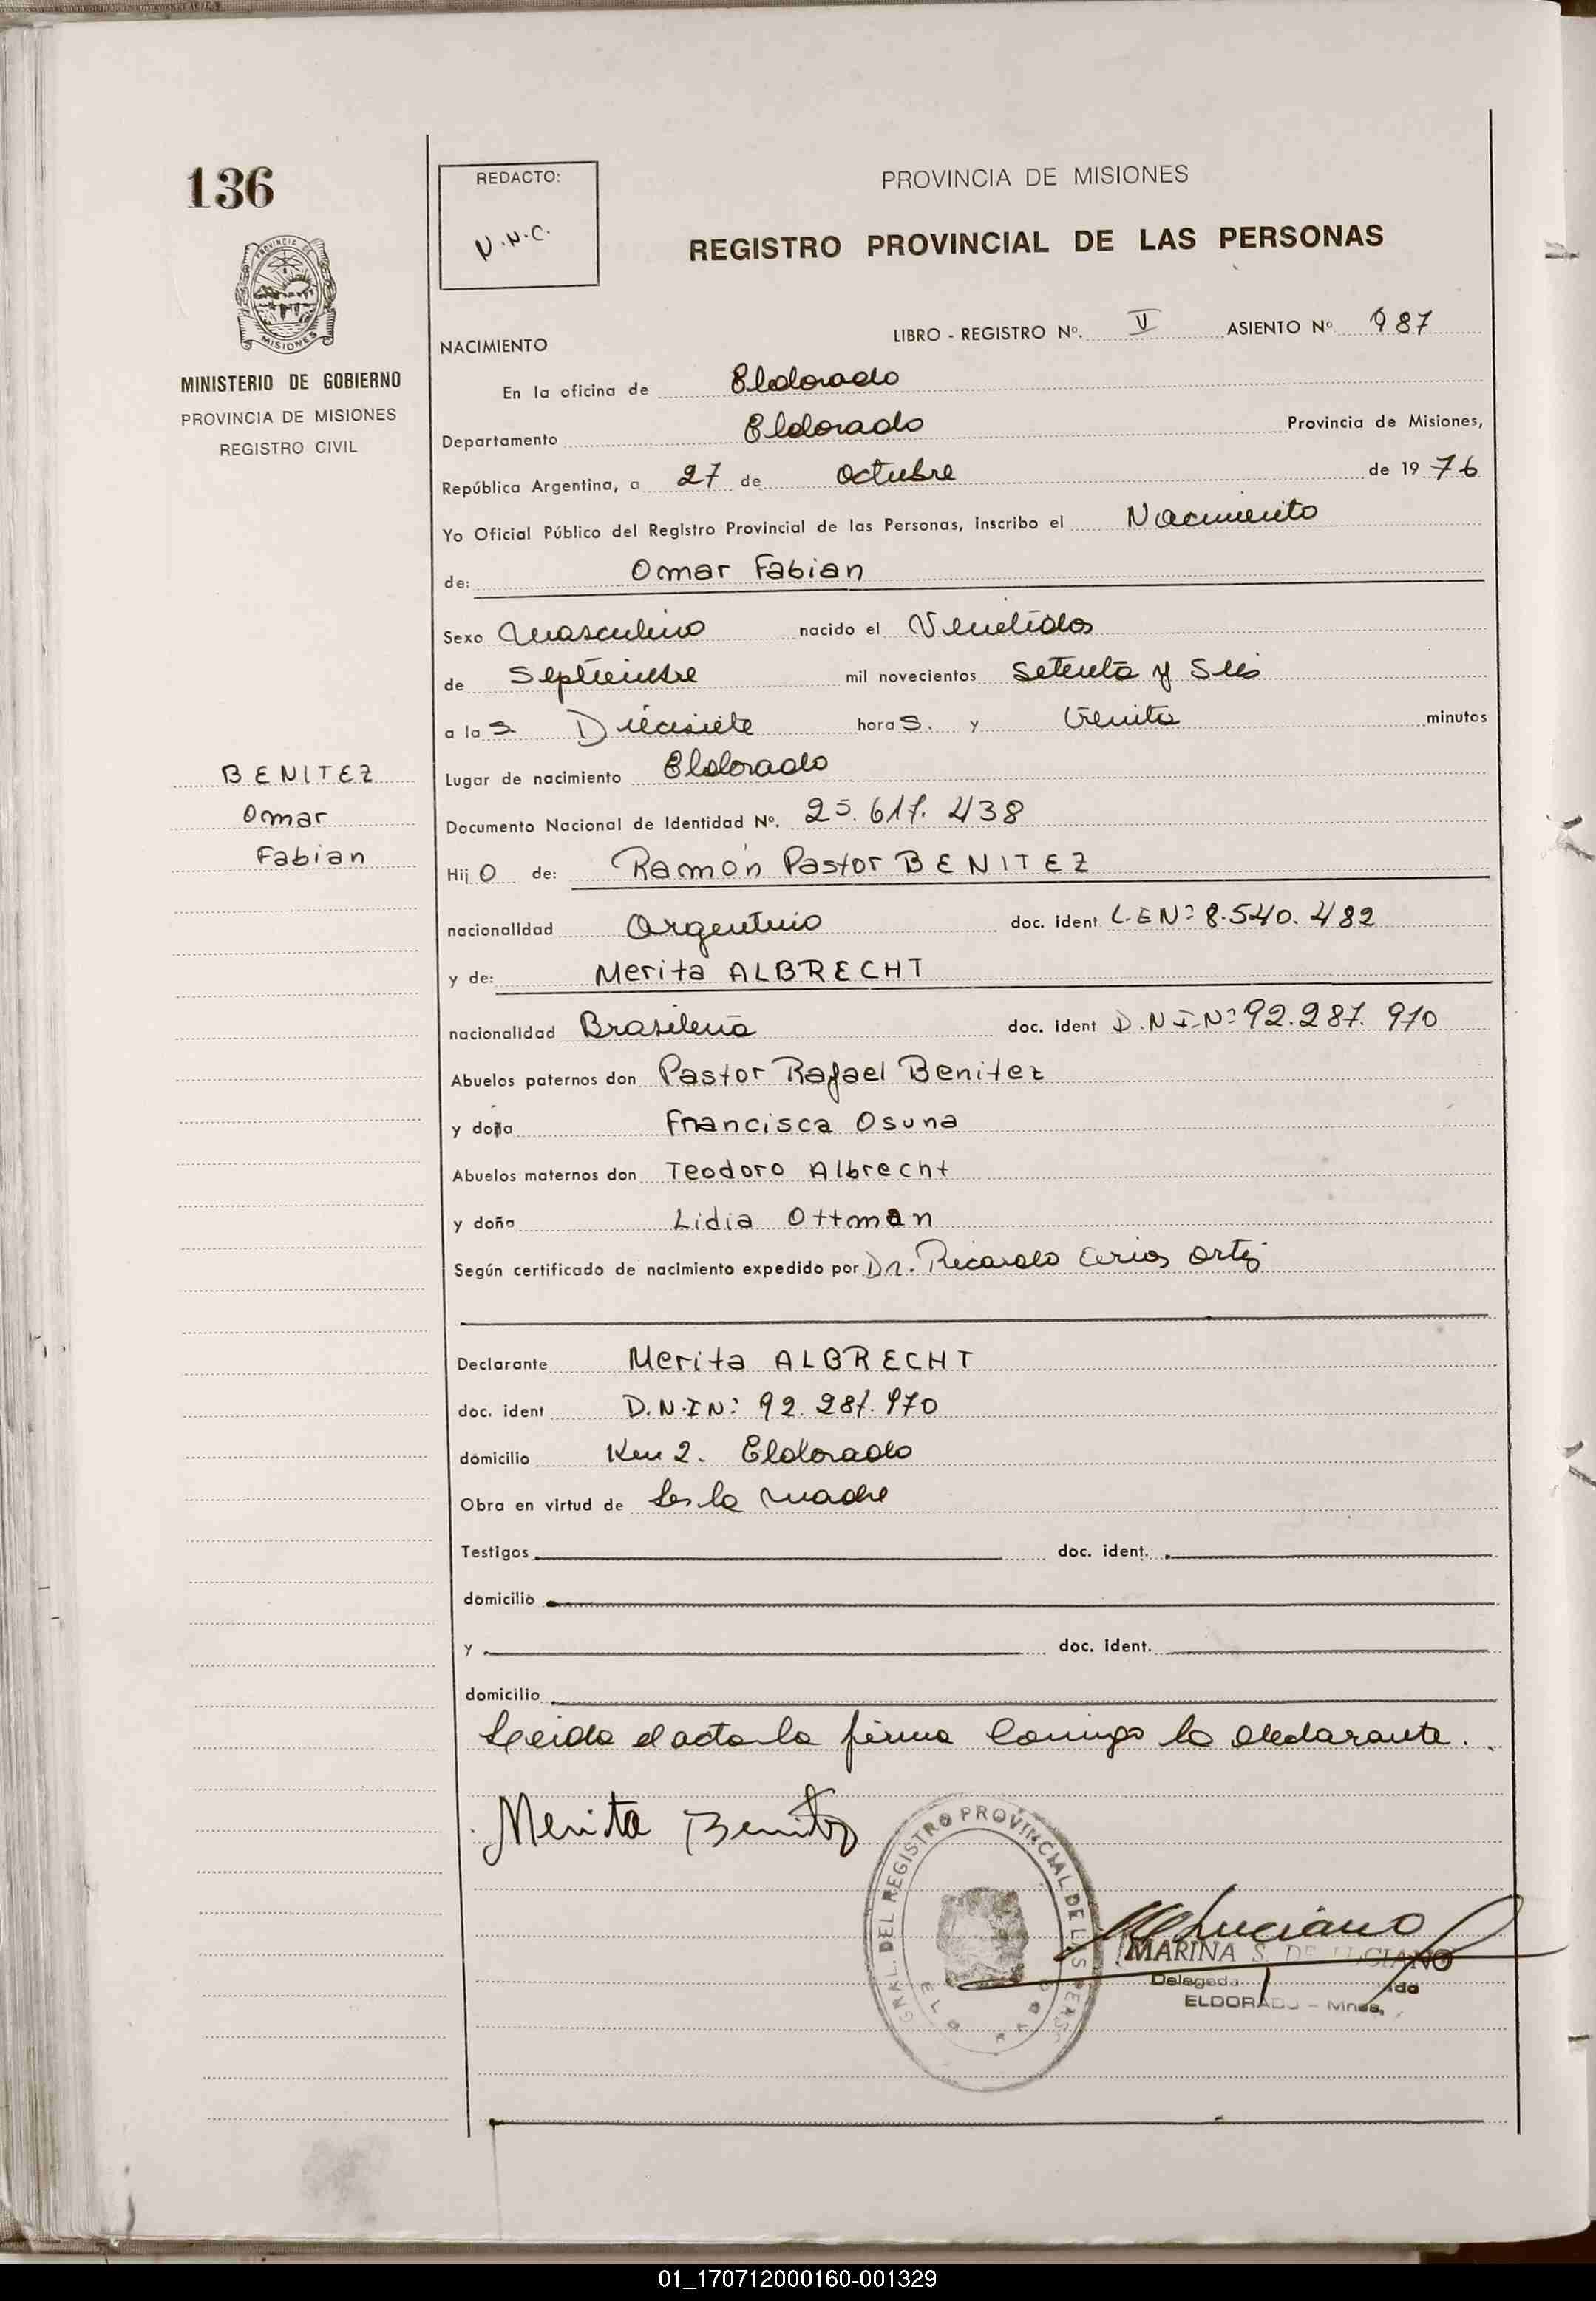 136
REDACTO:
N.N.C.
PROVINCIA DE MISIONES
REGISTRO PROVINCIAL DE LAS PERSONAS
PROVINCIA DE
MISIONES
MINISTERIO DE GOBIERNO
PROVINCIA DE MISIONES
REGISTRO CIVIL
LIBRO - REGISTRO Nº. V ASIENTO Nº 987
NACIMIENTO
En la oficina de Eldorado
Departamento Eldorado Provincia de Misiones,
República Argentina, a 27 de Octubre de 1976
Yo Oficial Público del Registro Provincial de las Personas, inscribo el Nacimiento
de: Omar Fabian
Sexo Masculino nacido el Veintidos
de Septiembre mil novecientos setenta y seis
a las Diecisiete horas. y treinta minutos
Lugar de nacimiento Eldorado
BENITEZ
Omar
Fabian
Documento Nacional de Identidad Nº. 25.617.438
Hijo de: Ramón Pastor BENITEZ
nacionalidad Argentino doc. ident L.E Nº 8.540.482
y de: Merita ALBRECHT
nacionalidad Brasileña doc. ident D.N.I.Nº 92.287.970
Abuelos paternos don Pastor Rafael Benitez
y doña Francisca Osuna
Abuelos maternos don Teodoro Albrecht
y doña Lidia Ottman
Según certificado de nacimiento expedido por Dr. Ricardo Ortiz
Declarante Merita ALBRECHT
doc. ident D.N.I Nº 92.287.970
domicilio Km 2. Eldorado
Obra en virtud de Ser la madre
Testigos doc. ident.
domicilio
y doc. ident.
domicilio
Leida el acta la firma conmigo la declarante.
Merita Benitez
GRAL. DEL REGISTRO PROVINCIAL DE LAS PERS
MARINA S. DE LUCIANO
Delegada
ELDORADO - Mnes,
01_170712000160-001329